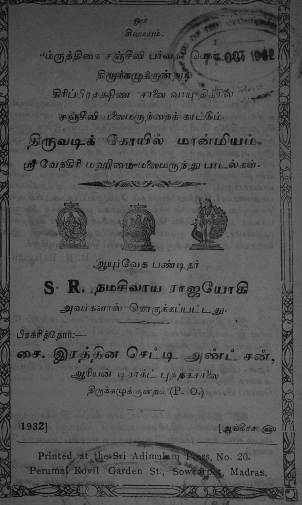 ஓம்
சிவமயம்.
"ம்ருத்திகை சஞ்சீவி பர்வத
திருக்கழுக்குன்றத்
கிரிப்பிரதக்ஷிண சாலை வாயு
சஞ்சீவி மலைமருந்தைக் காட்டும்
திருவடிக் கோயில் மான்மியம்
ஸ்ரீ வேதகிரி மஹிமை-மலைமருந்து பாடல்கள்.
ஆயுர்வேத பண்டிதர்
S. R. நமசிவாய ராஜயோகி
அவர்களால் தொகுக்கப்பட்டது.
பிரசுரித்தோர்:—
சை. இரத்தின செட்டி அண்ட் சன்,
ஆரியன் டிராக்ட் புத்தகசாலை
திருக்கழுக்குன்றம் (P. O.)
1932]
Printed at the Sri Adimulam Press, No. 20.
Perumal Kovil Garden St., Sowcarpet, Madras.